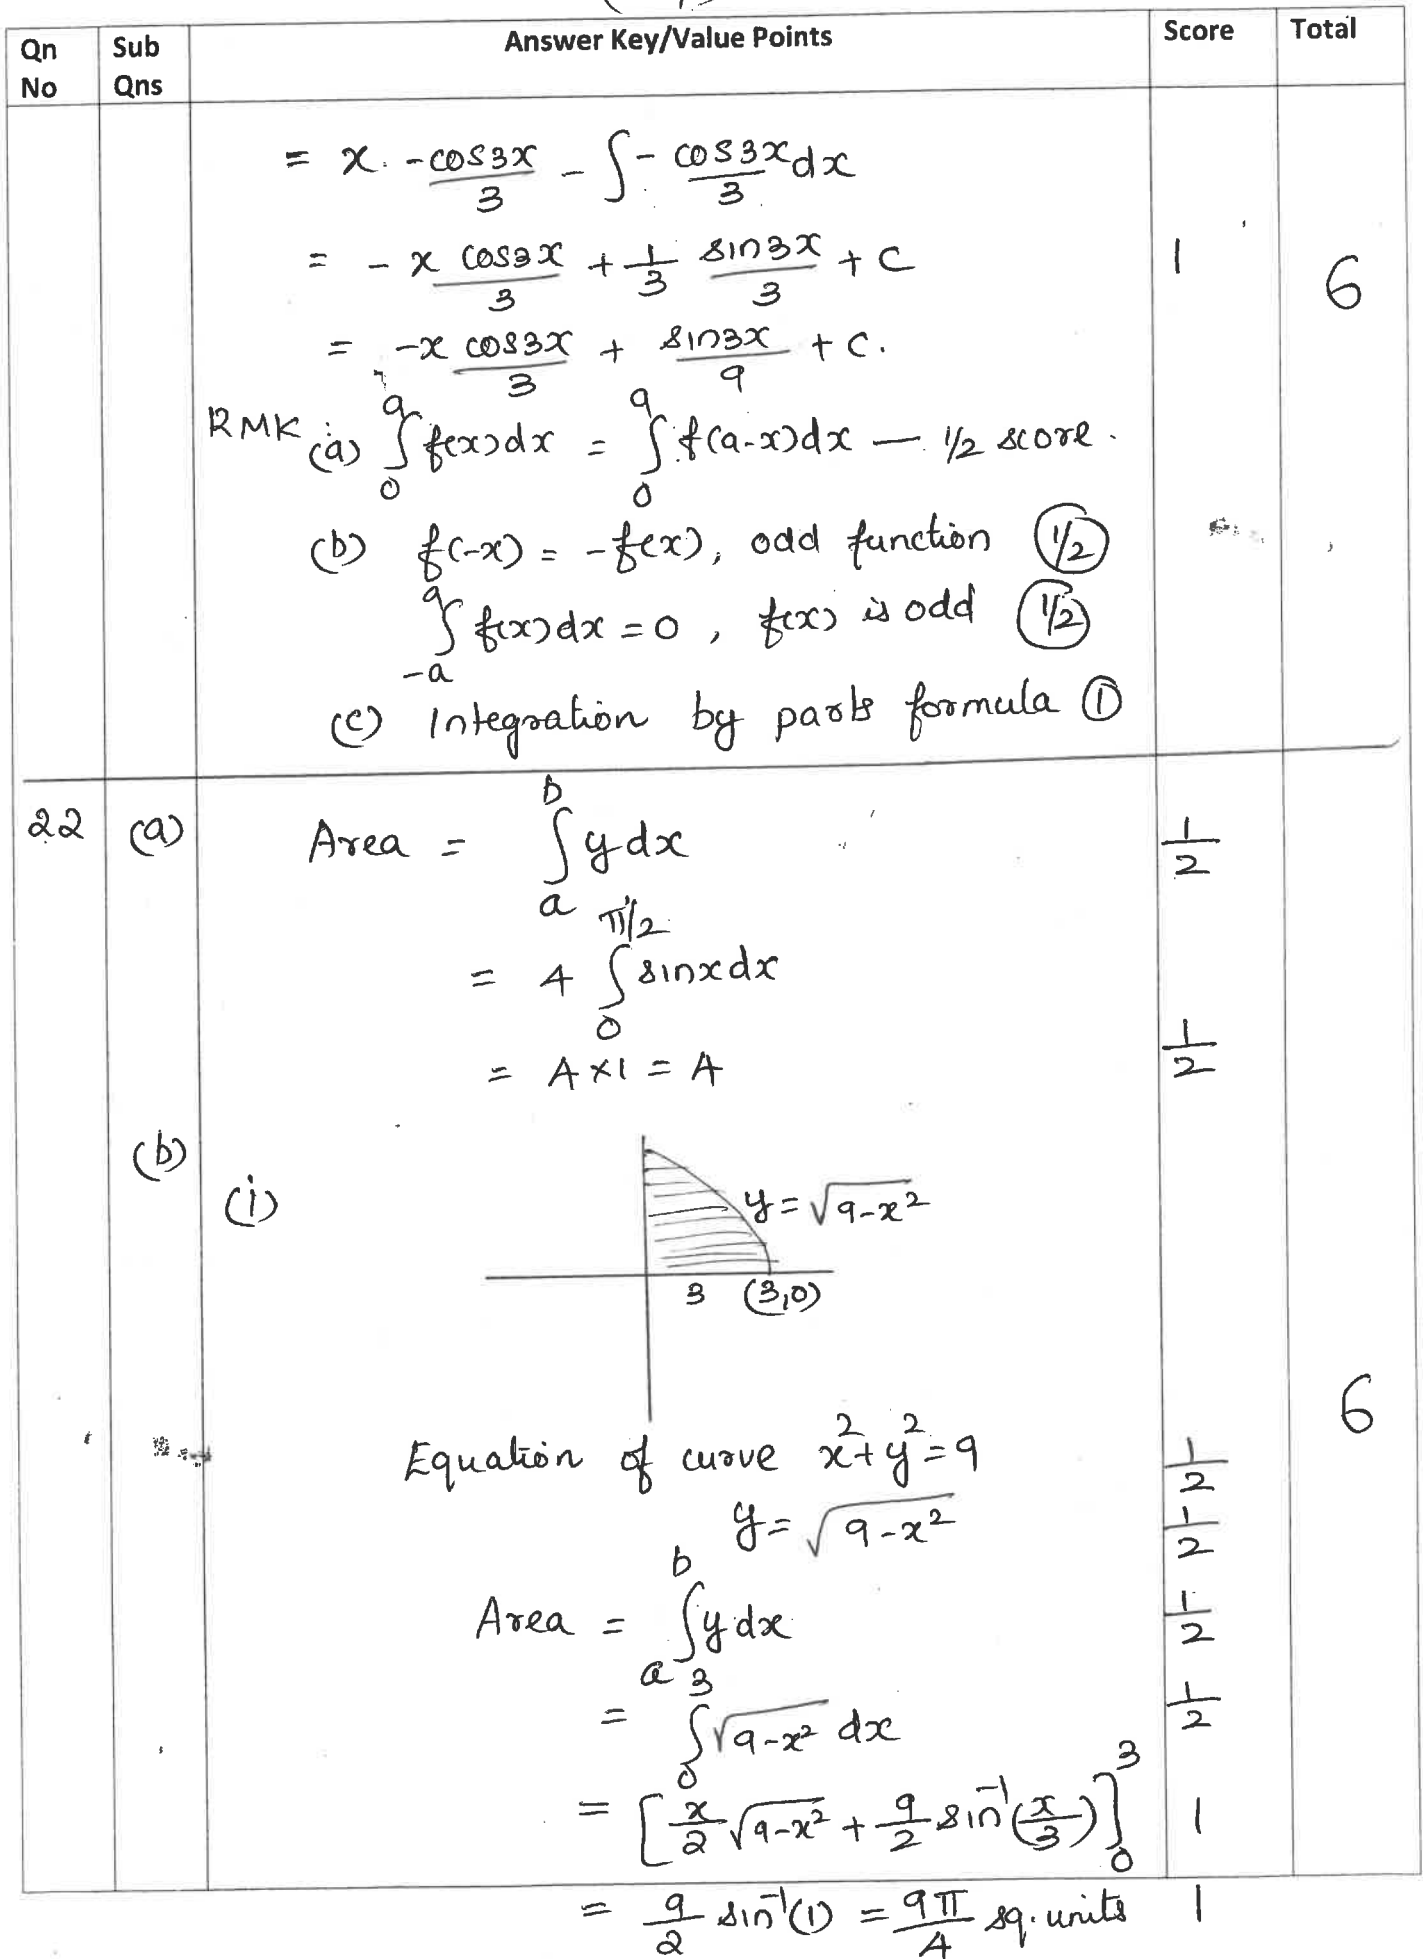 Qn No Sub Qns Answer Key/Value Points Score Total
= x. -cos3x/3 - ∫ - cos3x/3 dx
= - x cos3x/3 + 1/3 sin3x/3 + c 1 6
= -x cos3x/3 + sin3x/9 + c.
RMK (a) ∫₀ᵃ f(x)dx = ∫₀ᵃ f(a-x)dx — 1/2 score.
(b) f(-x) = -f(x), odd function (1/2)
∫₋ₐᵃ f(x)dx = 0, f(x) is odd (1/2)
(c) Integration by parts formula (1)
22 (a) Area = ∫ₐᵇ y dx 1/2
= 4 ∫₀^(π/2) sinx dx
= 4 x 1 = 4 1/2
(b)
(i) y = √(9-x²)
3 (3,0)
6
Equation of curve x² + y² = 9 1/2
y = √(9-x²) 1/2
Area = ∫ₐᵇ y dx 1/2
= ∫₀³ √(9-x²) dx 1/2
= [x/2 √(9-x²) + 9/2 sin⁻¹(x/3)]₀³ 1
= 9/2 sin⁻¹(1) = 9π/4 sq. units 1